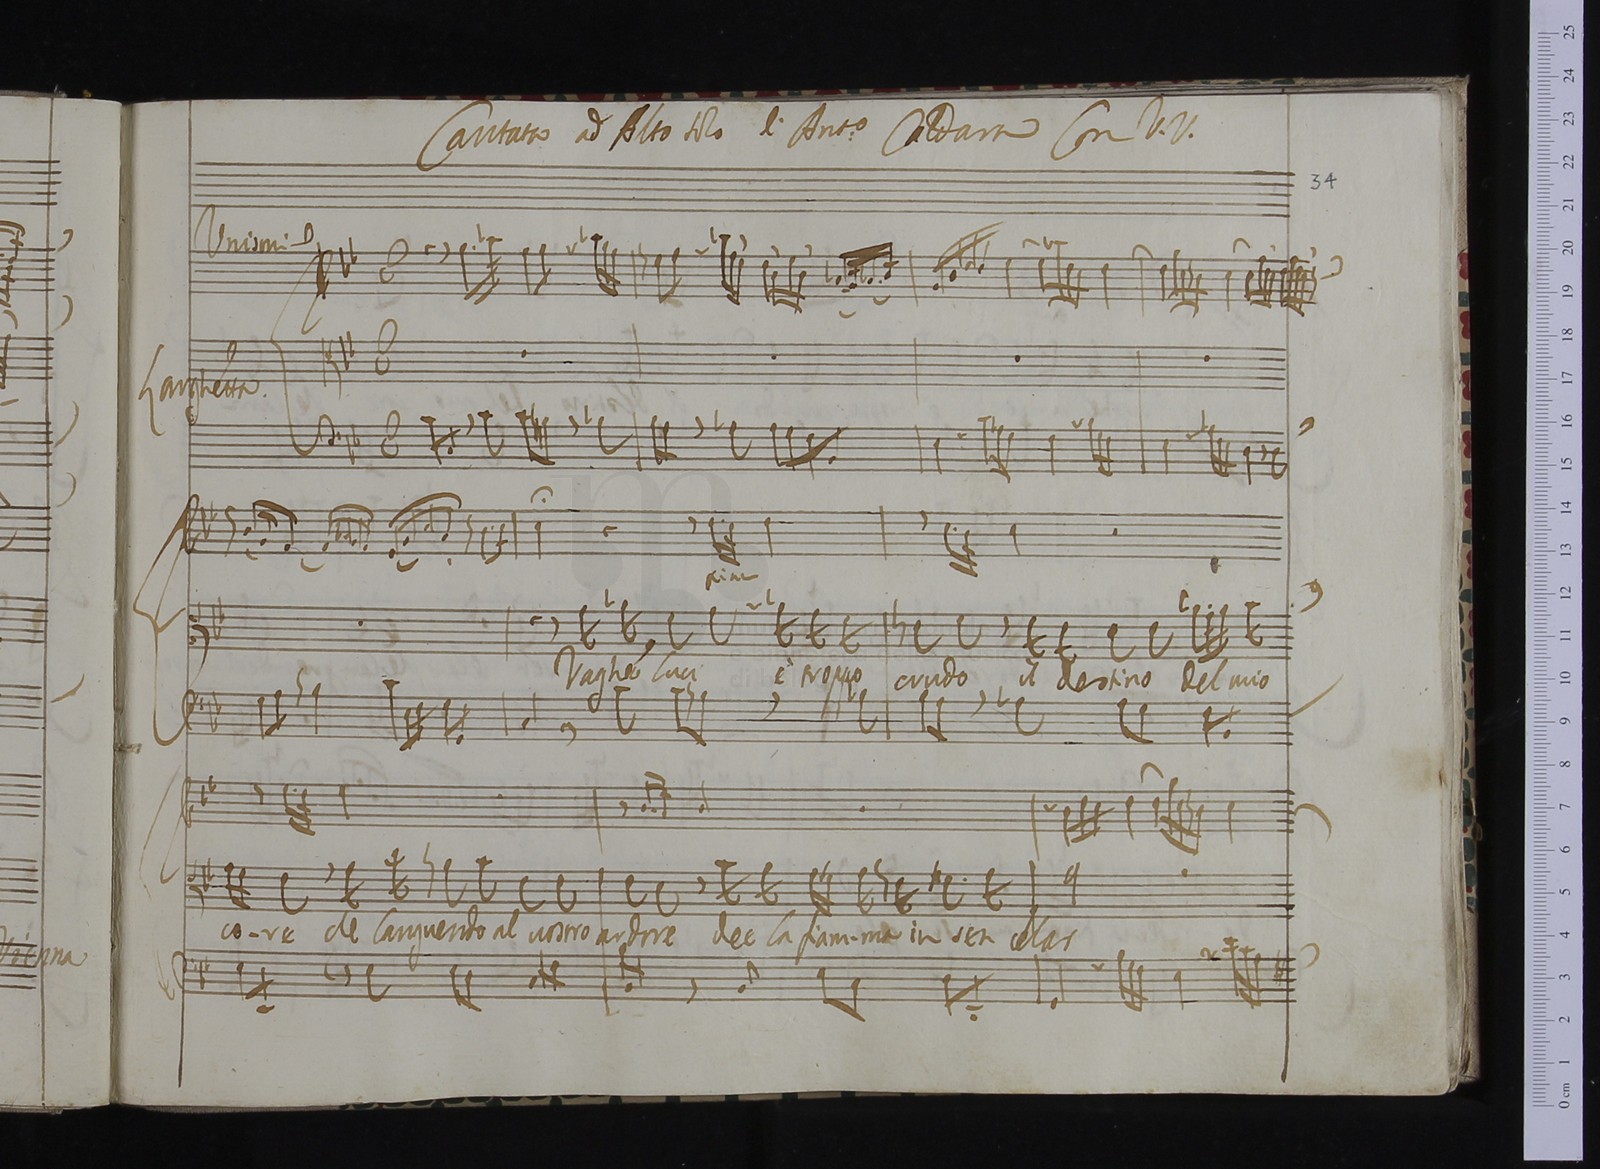 Cantata ad Alto solo di Ant.o Caldara Con V.V.
34
Unisoni
Larghetto.
pian
Vaghe luci è troppo crudo il destino del mio
co-re che languendo al vostro ardore dee la fiam-ma in sen celar
25
24
23
22
21
20
19
18
17
16
15
14
13
12
11
10
9
8
7
6
5
4
3
2
1
0 cm